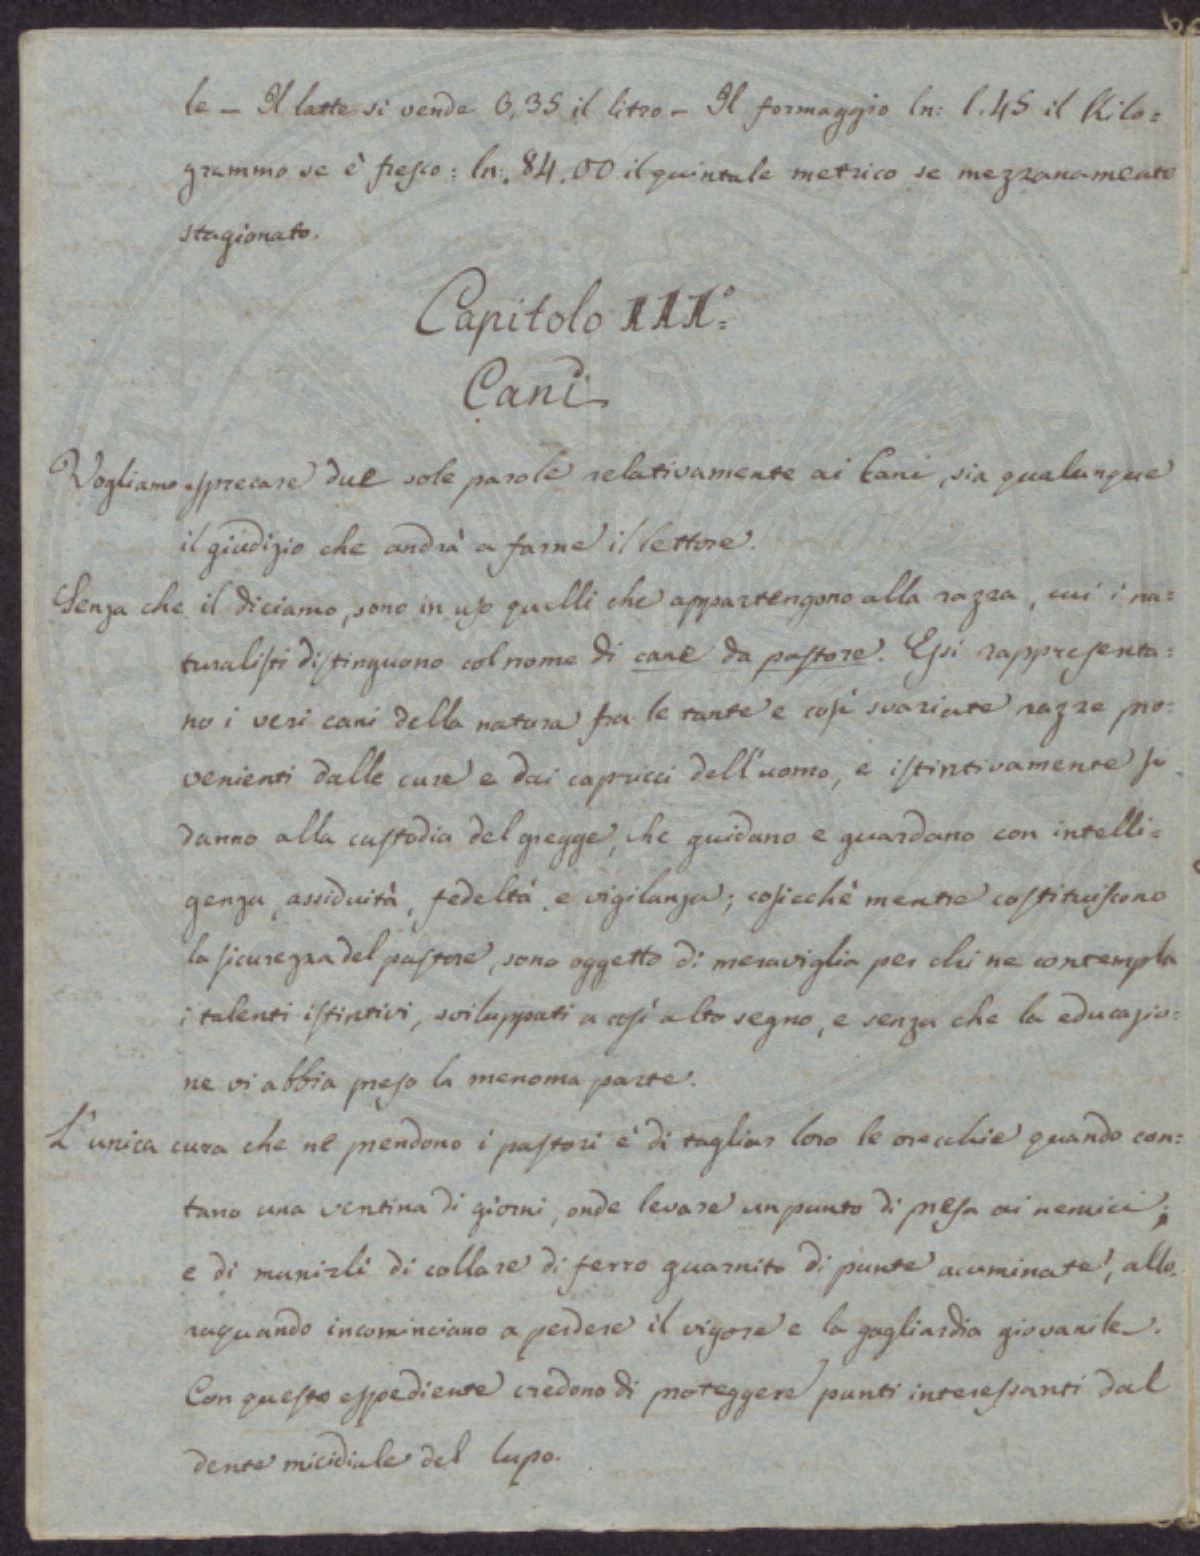 le – Il latte si vende 0,35 il litro – Il formaggio ln: 1.45 il Kilo=
grammo se è fresco: ln:. 84.00 il quintale metrico se mezzanamente
stagionato.
Capitolo III°=
Cani
Vogliamo sprecare due sole parole relativamente ai Cani, sia qualunque
il giudizio che andrà a farne il lettore.
Senza che il diciamo, sono in uso quelli che appartengono alla razza, cui i na=
turalisti distinguono col nome di cane da pastore. Essi rappresenta=
no i veri cani della natura fra le tante e così svariate razze pro=
venienti dalle cure e dai capricci dell'uomo, e istintivamente si
danno alla custodia del gregge, che guidano e guardano con intelli=
genza, assiduità, fedeltà e vigilanza; cosicchè mentre costituiscono
la sicurezza del pastore, sono oggetto di meraviglia per chi ne contempla
i talenti istintivi, sviluppati a così alto segno, e senza che la educazio=
ne vi abbia preso la menoma parte.
L'unica cura che ne prendono i pastori è di tagliar loro le orecchie quando con=
tano una ventina di giorni, onde levare un punto di presa ai nemici;
e di munirli di collare di ferro guarnito di punte acuminate, allo=
raquando incominciano a perdere il vigore e la gagliardia giovanile.
Con questo espediente credono di proteggere punti interessanti dal
dente micidiale del lupo.